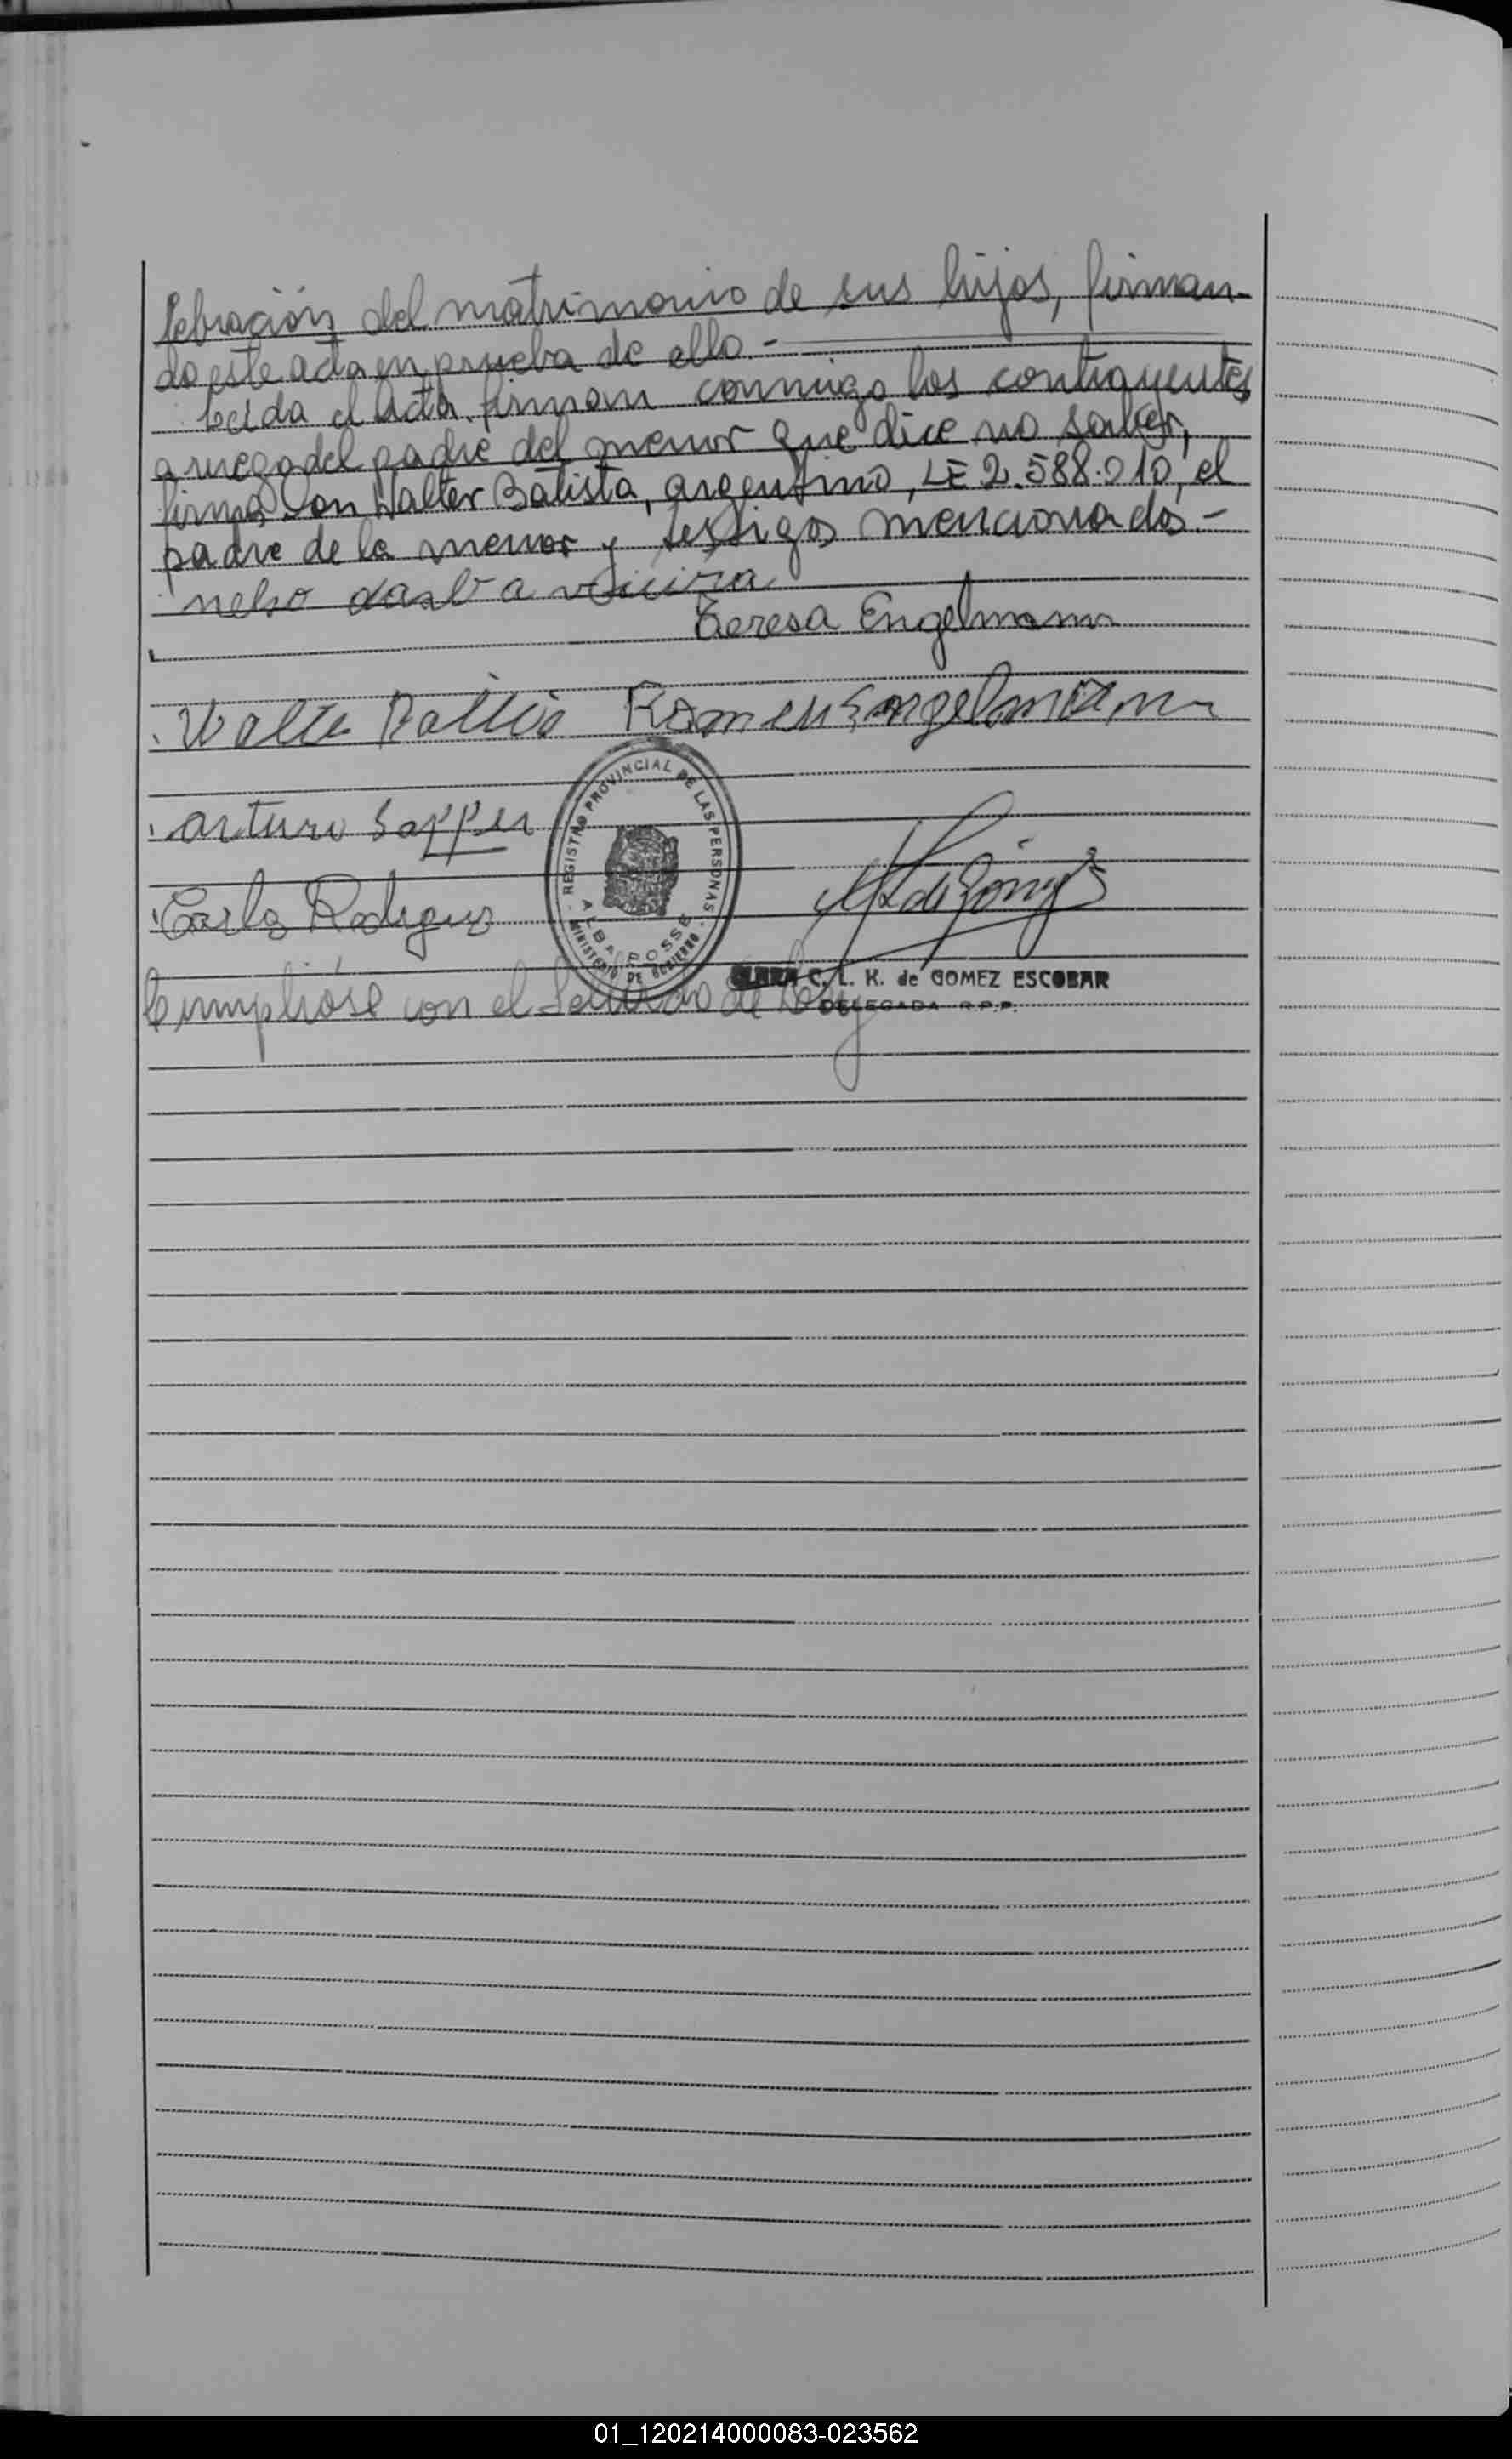 lebración del matrimonio de sus hijos, firman-
do este acta en prueba de ello.-
Leida el Acta, firman conmigo los contrayentes
a ruego del padre del menor que dice no saber,
firma Don Walter Batista, argentino, LE 2.588.010, el
padre de la menor y testigos mencionados.-
nelso
Teresa Engelmann
Romeu Engelmann
arturo Sapper
Carlos
REGISTRO PROVINCIAL DE LAS PERSONAS
ALBA POSSE
MINISTERIO DE GOBIERNO
CLARA C. L. K. de GOMEZ ESCOBAR
DELEGADA R.P.P.
Cumplióse con el Sellado de Ley
01_120214000083-023562